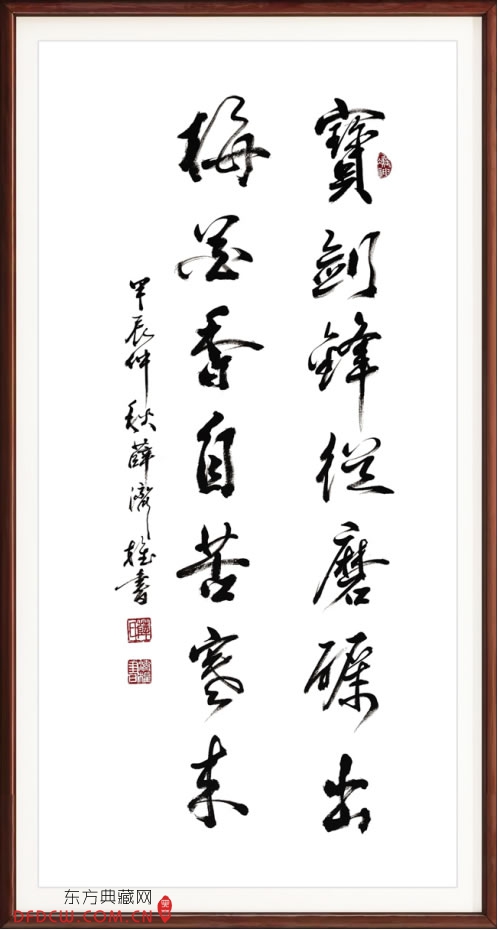 寶劍鋒從磨礪出
梅花香自苦寒来
甲辰仲秋薛書
东方典藏网
DFDCW.COM.CN